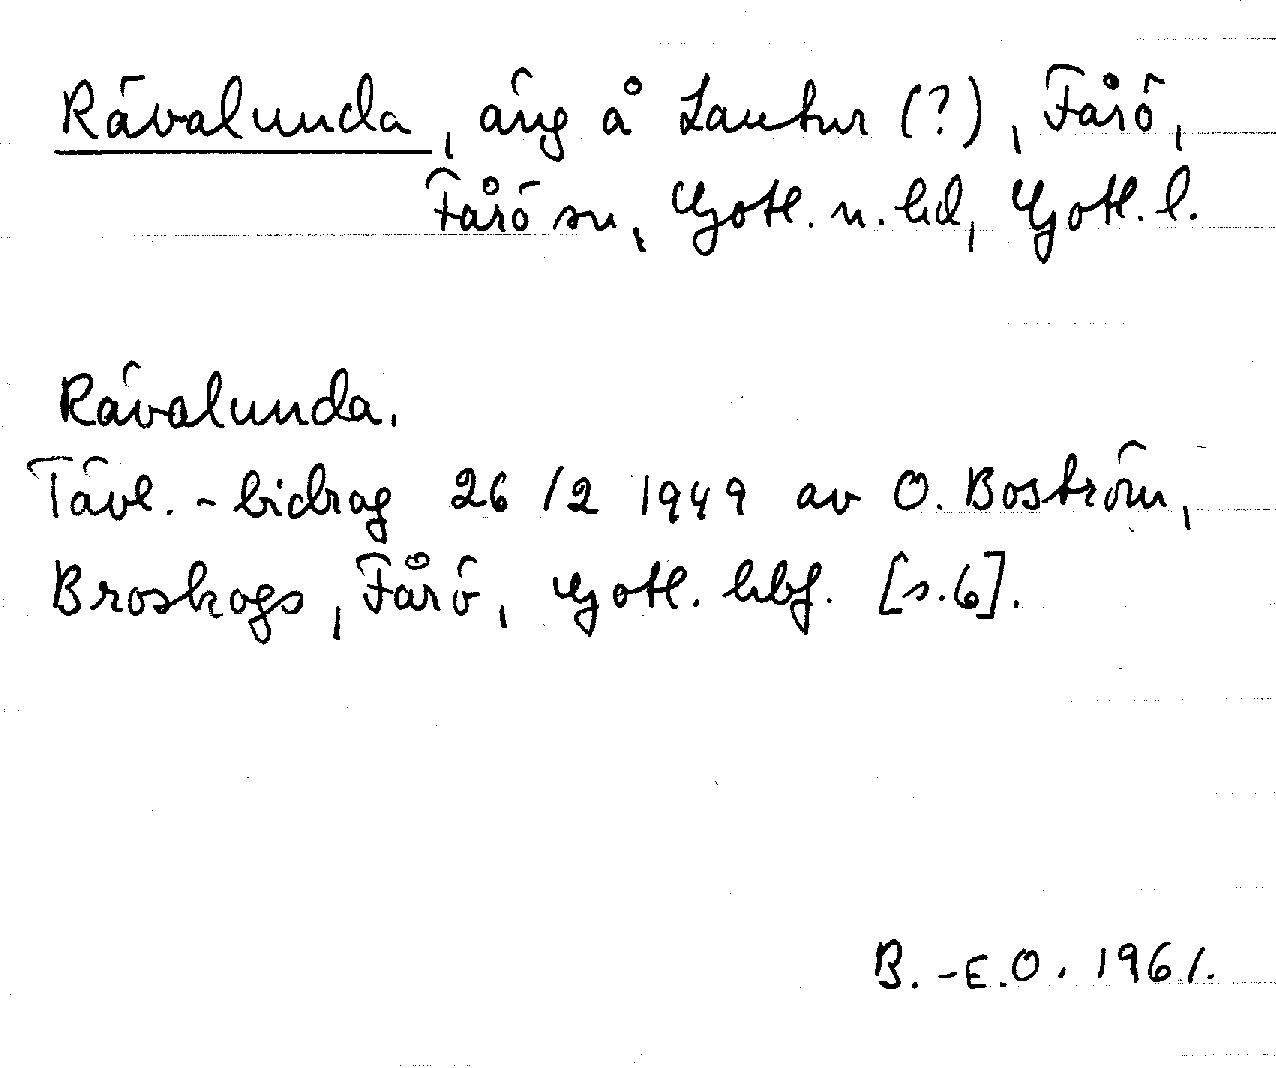 Rävalunda, äng å Lauhur (?), Fårö,
Fårö sn, Gotl. n. hd, Gotl. l.
Rävalunda.
Tävl.-bidrag 26/2 1949 av O. Boström,
Broskogs, Fårö, Gotl. hbf. [s.6].
B.-E.O. 1961.